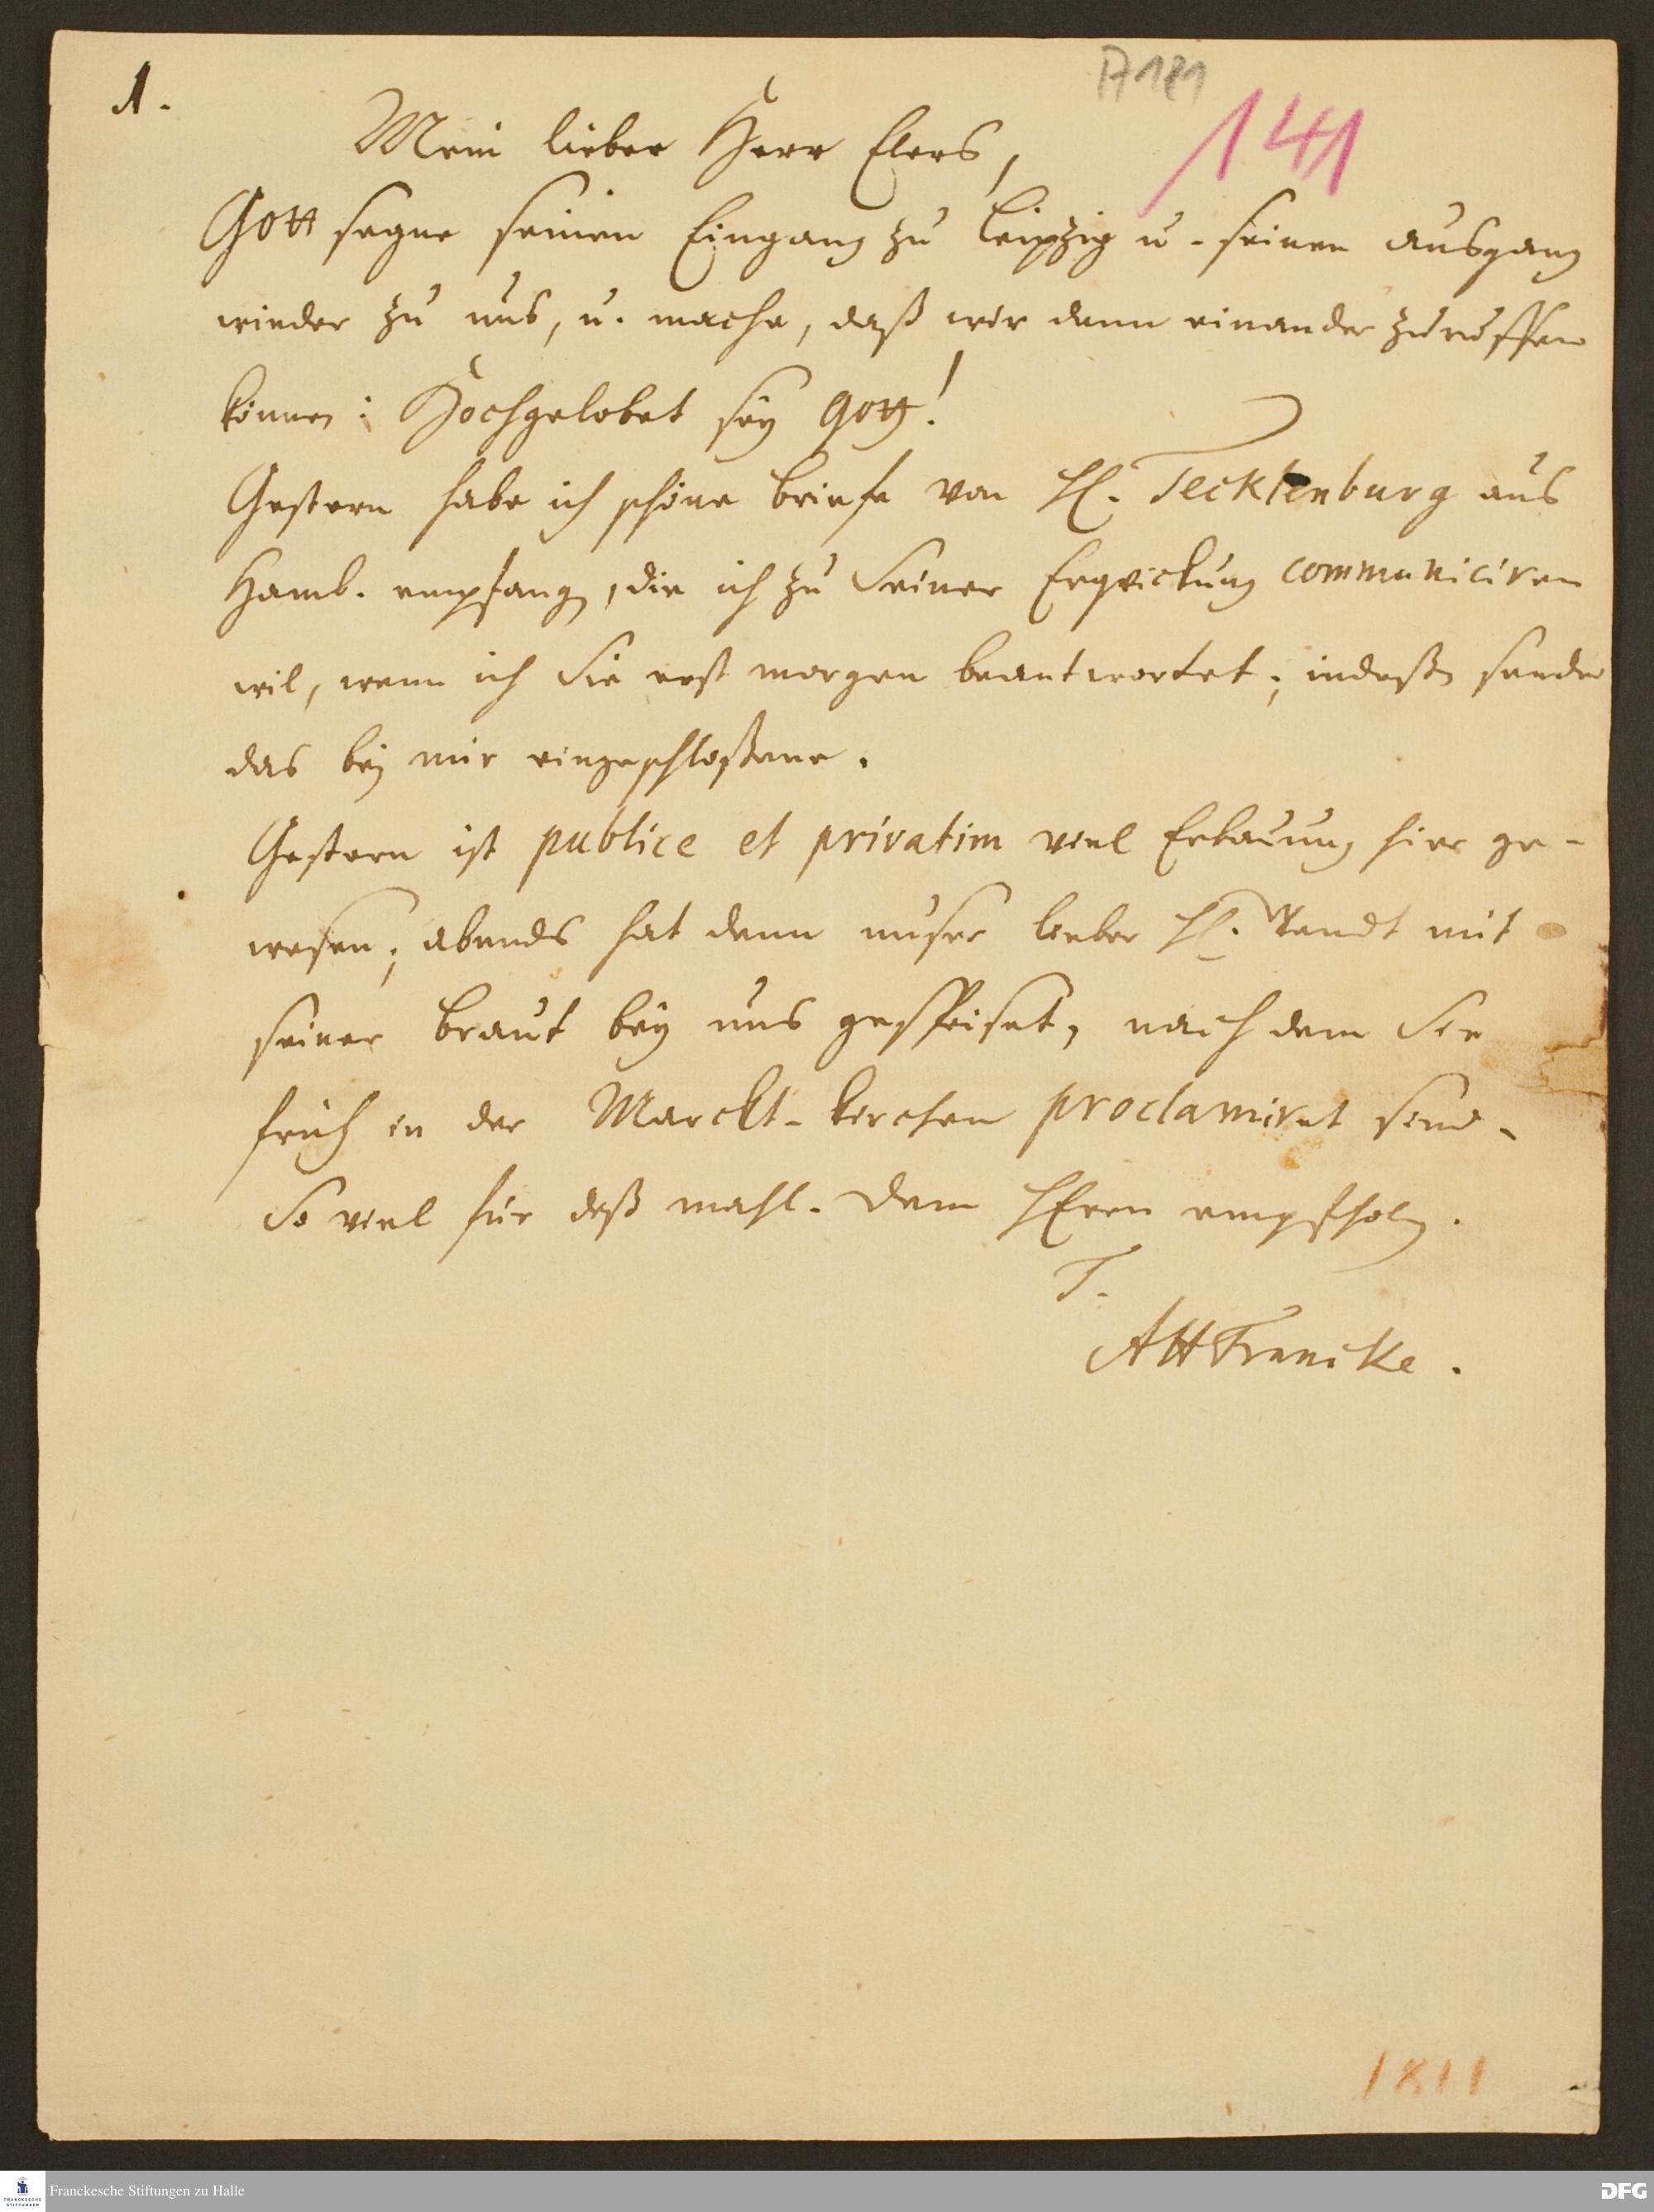 1.
A 181
141
Mein lieber Herr Elers,
Gott segne seinen Eingang zu Leipzig u. seinen ausgang
wieder zu uns, u. mache, daß wir denn einander zuruffen
können: Hochgelobet sey Gott!
Gestern habe ich schöne briefe von H. Tecklenburg aus
Hamb. empfangen, die ich zu Seiner Erqvickung communiciren
wil, wenn ich Sie erst morgen beantwortet; indeßen sende
das bey mir eingeschloßene.
Gestern ist publice et privatim viel Erbauung hier ge-
wesen; abends hat denn unser lieber H. mit
seiner braut bey uns gespeiset, nach dem Sie
früh in der Marckt-kirchen proclamiret sind.
So viel für deß mahl. Dem HErrn empfholen.
T.
AHFrancke.
1811
Franckesche Stiftungen zu Halle
FRANCKESCHE STIFTUNGEN
DFG